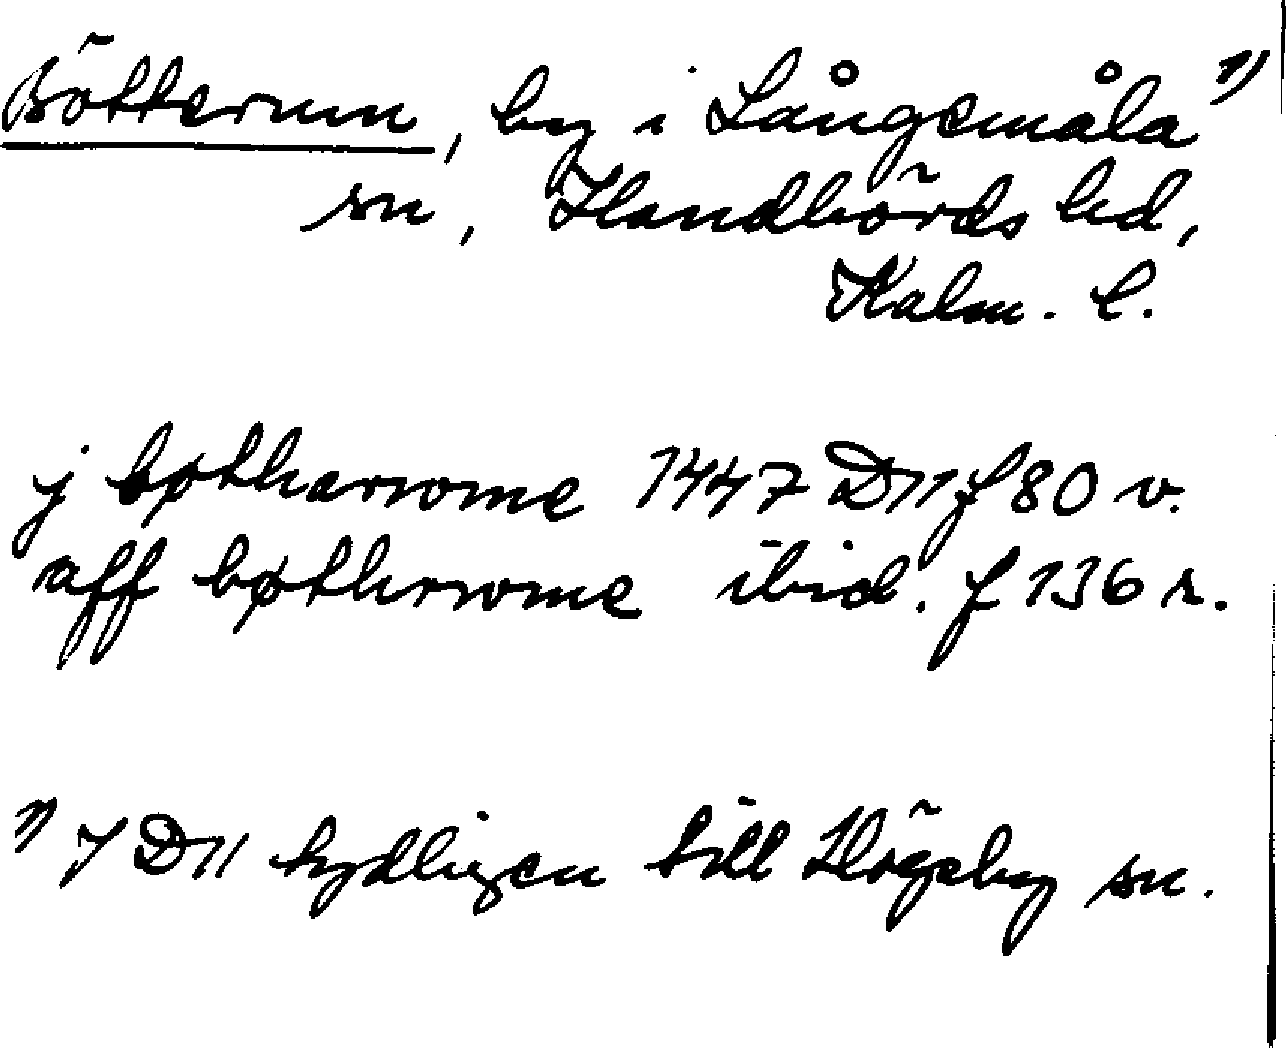 Bötterum, by i Långemåla 1)
sn, Handbörds hd,
Kalm. l.
j bøtharwme 1447 D11 f 80 v.
aff bøthrwme ibid. f 136 r.
1) I D11 tydligen till Högsby sn.